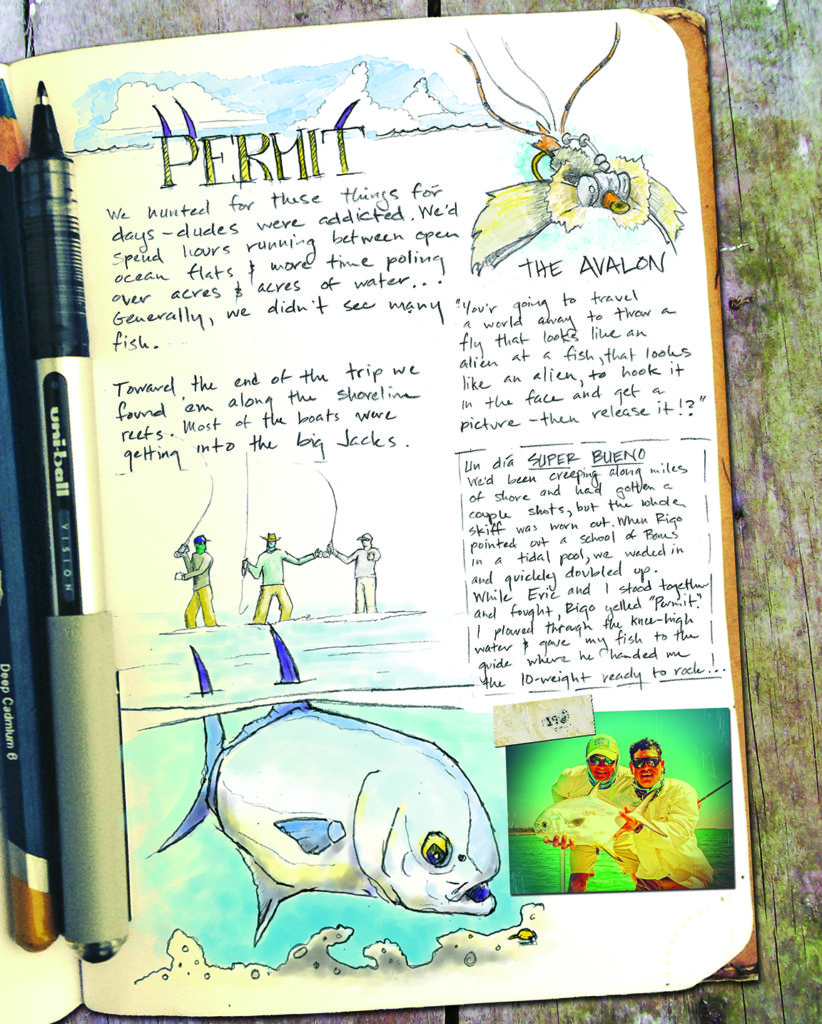 PERMIT
We hunted for these things for
days - dudes were addicted. We'd
spend hours running between open
ocean flats & more time poling
over acres & acres of water...
Generally, we didn't see many
fish.
Toward the end of the trip we
found 'em along the shoreline
reefs. Most of the boats were
getting into the big Jacks.
THE AVALON
"Your going to travel
a world away to throw a
fly that looks like an
alien at a fish, that looks
like an alien, to hook it
in the face and get a
picture - then release it!?"
Un día SUPER BUENO
We'd been creeping along miles
of shore and had gotten a
couple shots, but the whole
skiff was worn out. When Rigo
pointed out a school of Bones
in a tidal pool, we waded in
and quickly doubled up.
While Eric and I stood together
and fought, Rigo yelled "Permit".
I plowed through the knee-high
water & gave my fish to the
guide where he handed me
the 10-weight ready to rock...
uni-ball
VISION
Deep Cadmium 6